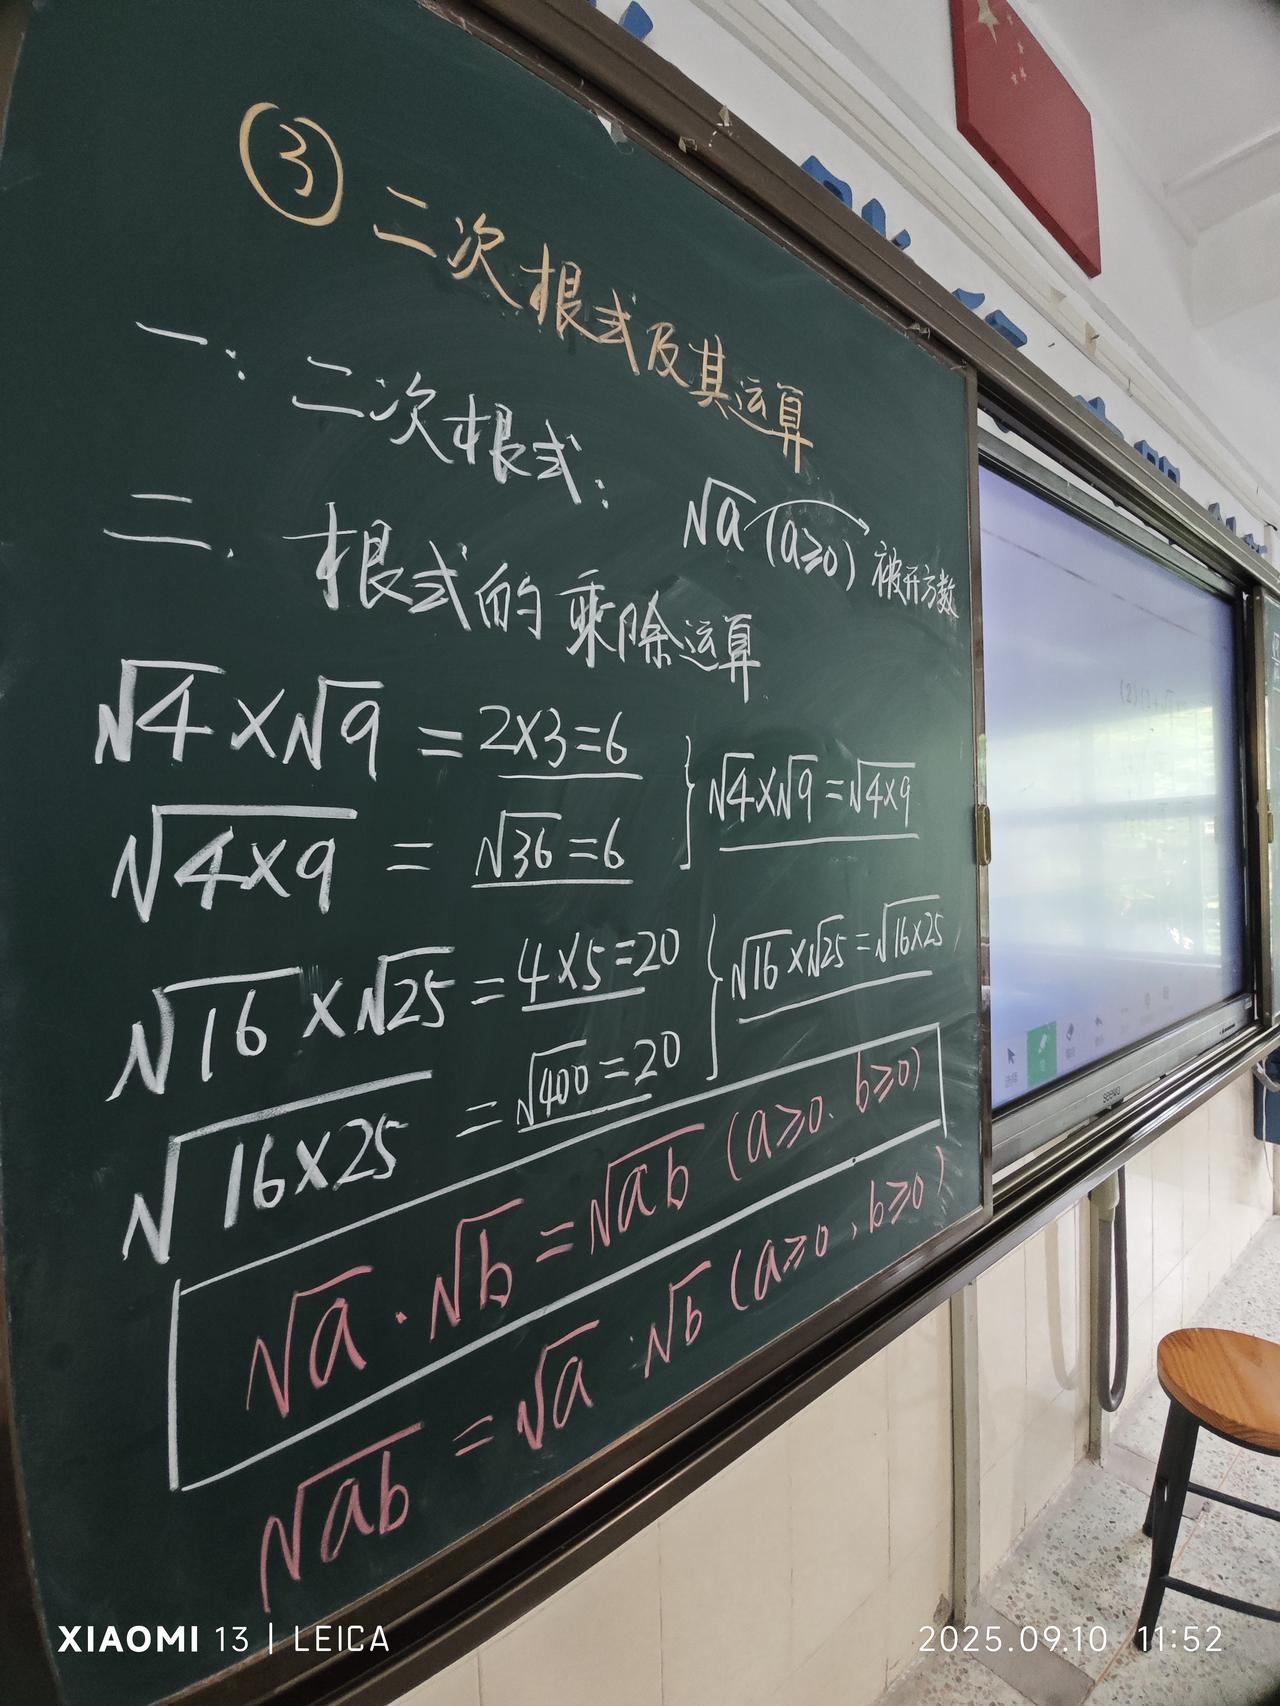 ③ 二次根式及其运算
一、二次根式: √a (a≥0) 被开方数
二、根式的乘除运算
√4 × √9 = 2×3=6
√4×9 = √36=6
} √4×√9=√4×9
√16 × √25 = 4×5=20
√16×25 = √400=20
} √16×√25=√16×25
√a · √b = √ab (a≥0、b≥0)
√ab = √a · √b (a≥0, b≥0)
seewo
XIAOMI 13 | LEICA
2025.09.10 11:52